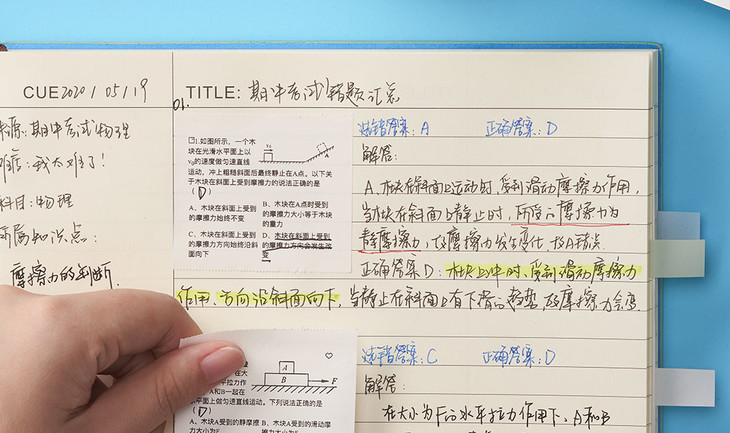 CUE2020/05/19
TITLE: 期中考试错题汇总
来源:期中考试物理
难度:我太难了!
科目:物理
所属知识点:
摩擦力的判断
01.
1.如图所示,一个木
块在光滑水平面上以
v₀的速度做匀速直线
运动,冲上粗糙斜面后最终静止在A点。以下关
于木块在斜面上受到摩擦力的说法正确的是
(D)
v₀
A
A、木块在斜面上受到
的摩擦力始终不变
B、木块在A点时受到
的摩擦力大小等于木块
的重力
C、木块在斜面上受到
的摩擦力方向始终沿斜
面向下
D、木块在斜面上受到
的摩擦力方向会发生改
变
选错答案:A 正确答案:D
解答:
A.木块在斜面上运动时,受到滑动摩擦力作用,
当木块在斜面上静止时,所受的摩擦力为
静摩擦力,故摩擦力发生变化 故A错误
正确答案D:木块上冲时,受到滑动摩擦力
作用、方向沿斜面向下,当静止在斜面上有下滑的趋势,故摩擦力会变
选错答案:C 正确答案:D
解答:
在大小为F的水平拉力作用下、A和B
A
B
F
在大
平拉力作
A和B一起在
水平面上做匀速直线运动。下列说法正确的是
(D)
A、木块A受到的静摩擦
力大小为F
B、木块A受到的滑动摩
擦力大小